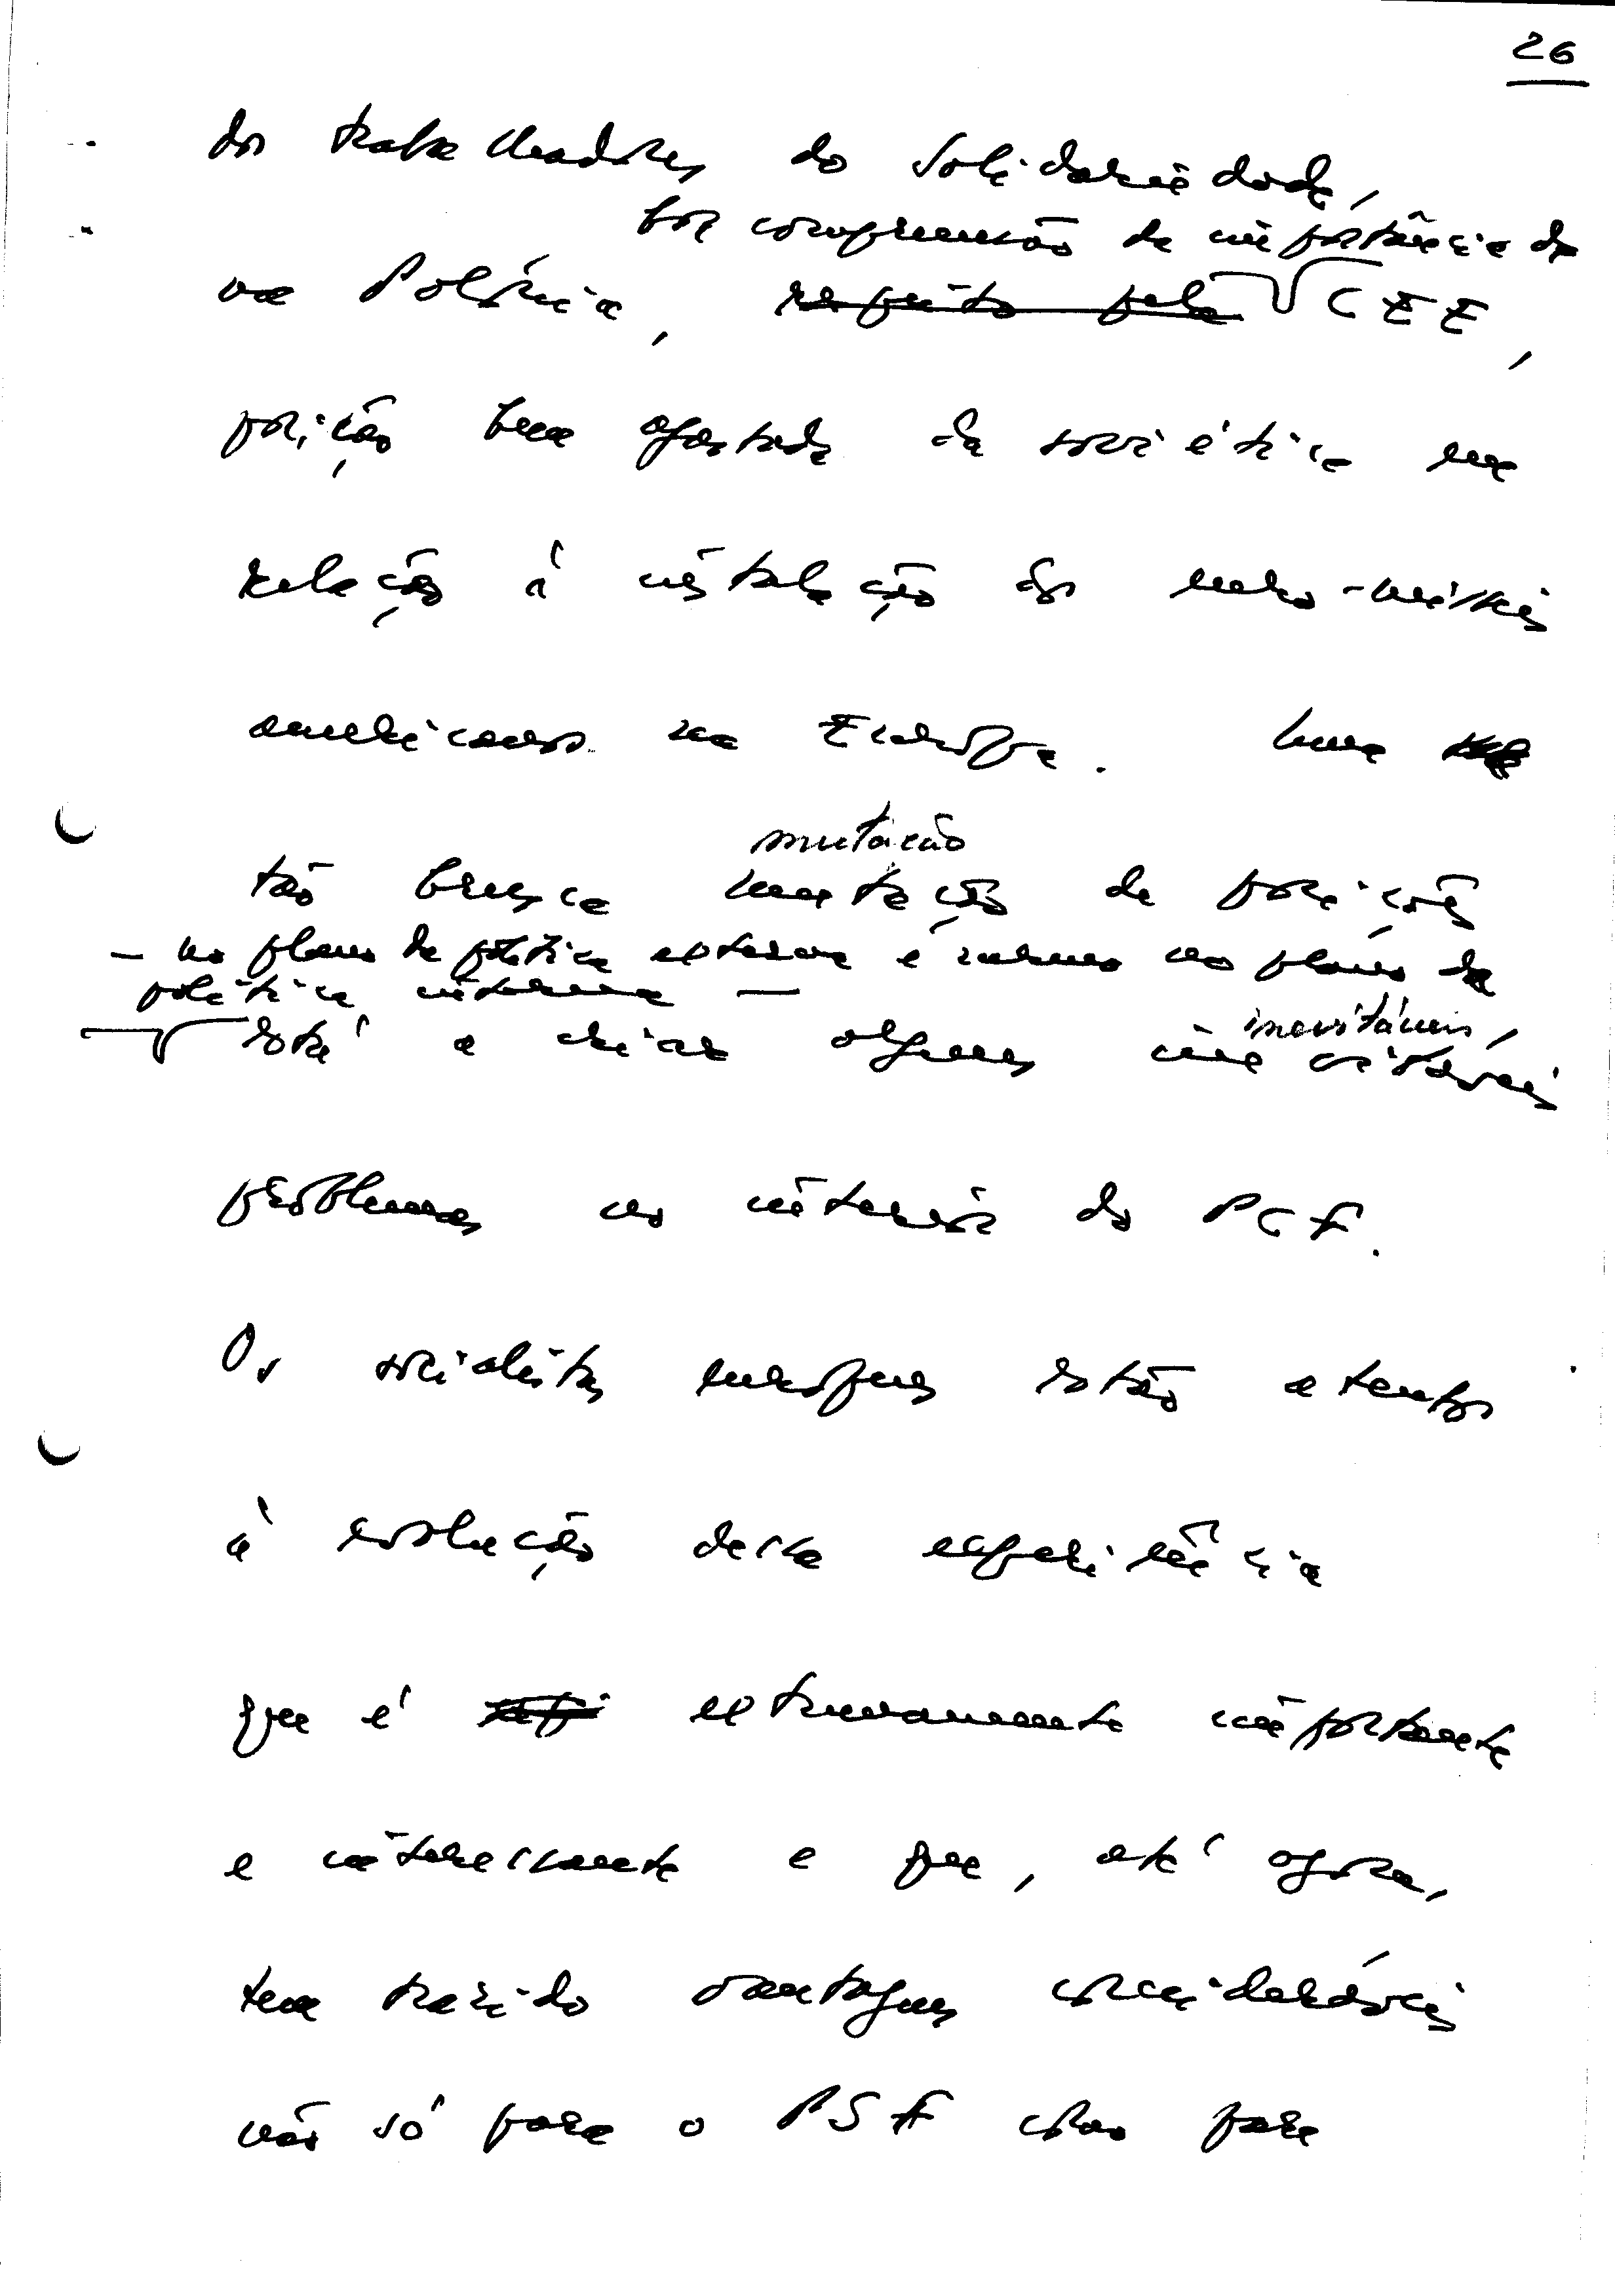 26
dos trabalhadores do Solidariedade,
boa compreensão da importância da
na Polónia, respeito pela CEE,
posição bem afastada da soviética em
relação à instalação dos euro-mísseis
americanos na Europa. Uma
mutação
tão brusca mutação de posições
— no plano da política externa e mesmo no plano da
política interna —
inevitáveis,
está a criar alguns inevitáveis
problemas no interior do PCF.
Os socialistas europeus estão atentos
à evolução desta experiência
que é extremamente importante
e interessante e que, até agora,
tem trazido vantagens consideráveis
não só para o PSF como para